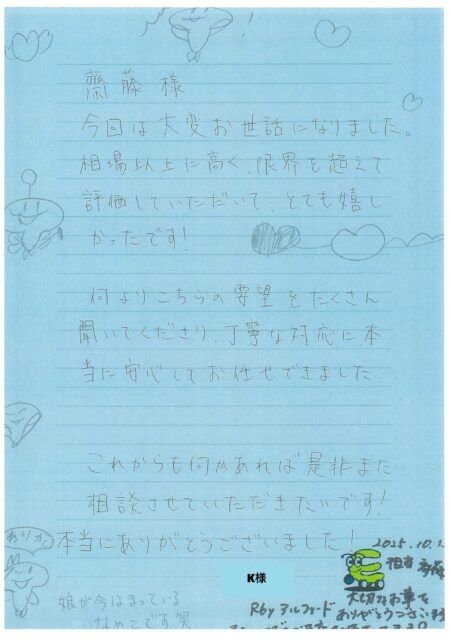 齋藤様
今回は大変お世話になりました。
相場以上に高く、限界を超えて
評価していただいて、とても嬉し
かったです!
何よりこちらの要望をたくさん
聞いてくださり、丁寧な対応に、本
当に安心してお任せできました
これからも何かあれば是非また
相談させていただきたいです!
本当にありがとうございました!
ありが
K様
2025.10.
担当 斎藤
娘が今はまっている
なめてです笑
大切なお車を
R6y アルファード
ありがとうございます